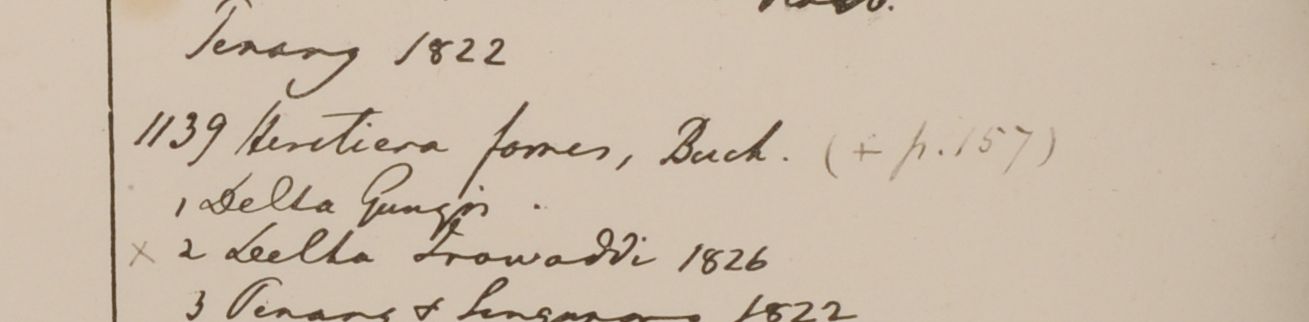 Penang 1822
1139 Heretiera fomes, Buch. (+ p. 157)
1 Delta Gangis.
x 2 Delta Irawaddi 1826
3 Penang & Singapore 1822